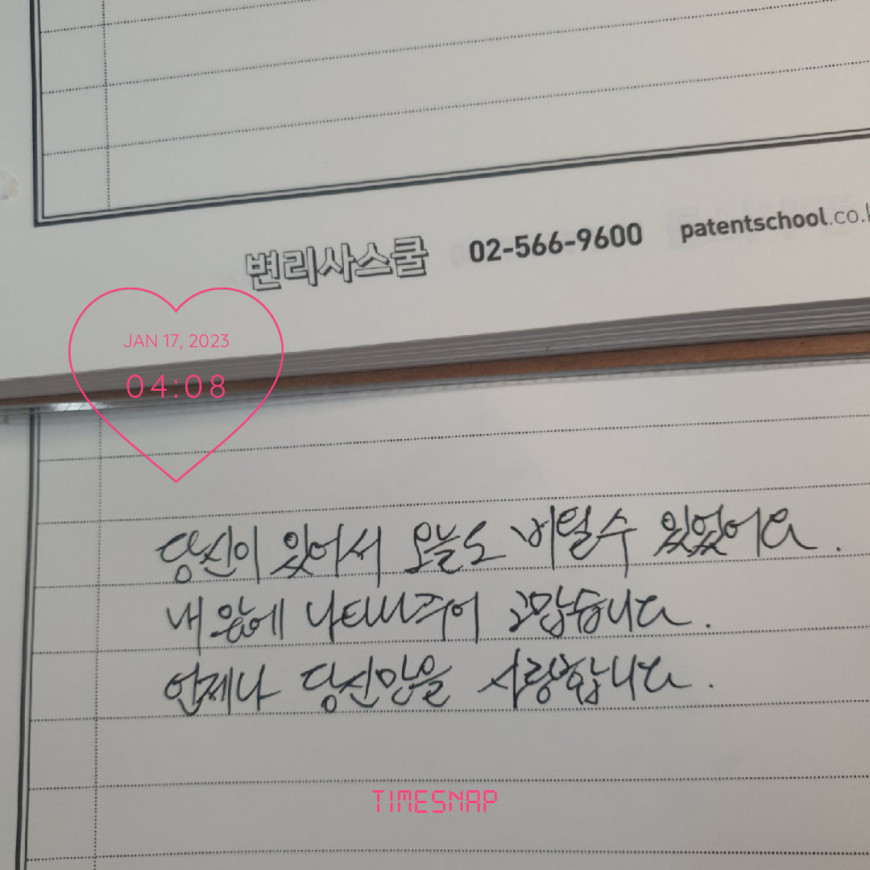 변리사스쿨 02-566-9600 patentschool.co.k
JAN 17, 2023
04:08
당신이 있어서 오늘도 버틸수 있었어요.
내 앞에 나타나주어 고맙습니다.
언제나 당신만을 사랑합니다.
TIMESNAP